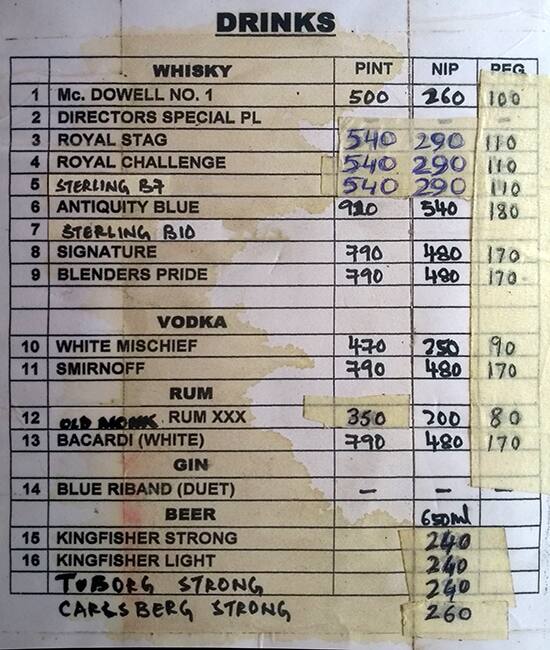 DRINKS
WHISKY PINT NIP PEG
1 Mc. DOWELL NO. 1 500 260 100
2 DIRECTORS SPECIAL PL – – –
3 ROYAL STAG 540 290 110
4 ROYAL CHALLENGE 540 290 110
5 STERLING B7 540 290 110
6 ANTIQUITY BLUE 920 540 180
7 STERLING B10
8 SIGNATURE 790 480 170
9 BLENDERS PRIDE 790 480 170
VODKA
10 WHITE MISCHIEF 470 250 90
11 SMIRNOFF 790 480 170
RUM
12 OLD MONK RUM XXX 350 200 80
13 BACARDI (WHITE) 790 480 170
GIN
14 BLUE RIBAND (DUET) – – –
BEER 650ml
15 KINGFISHER STRONG 240
16 KINGFISHER LIGHT 240
TUBORG STRONG 240
CARLSBERG STRONG 260